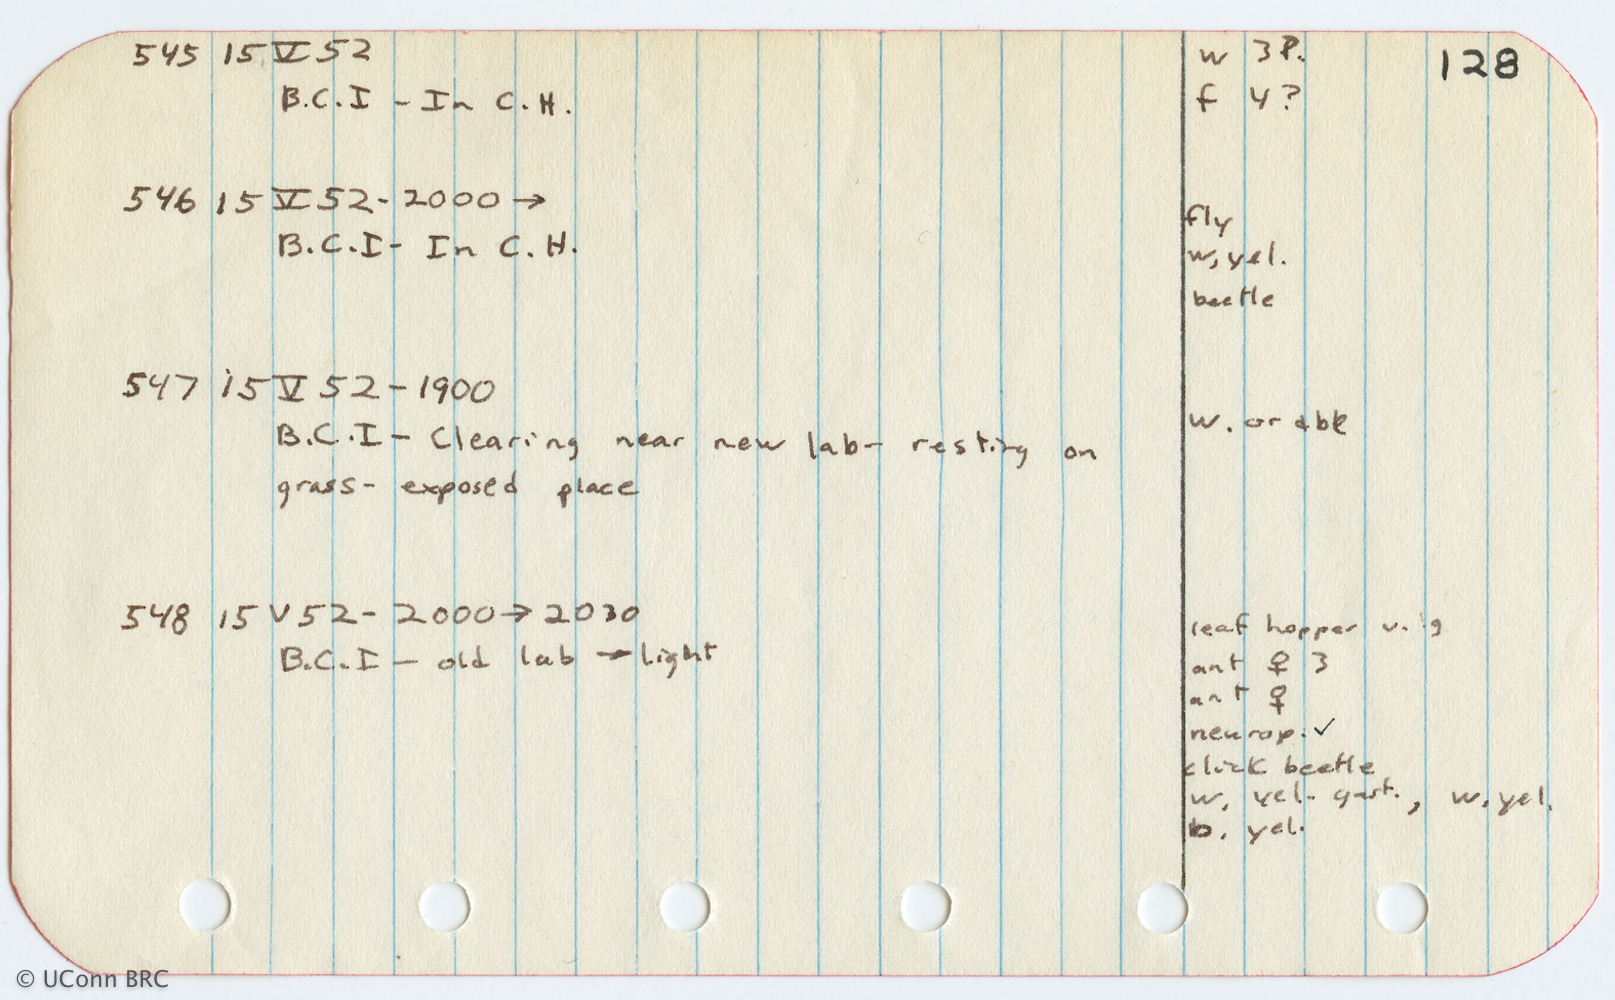 128
545 15 V 52
B.C.I - In C.H.
w 3?.
f 4?
546 15 V 52 - 2000 →
B.C.I - In C.H.
fly
w, yel.
beetle
547 15 V 52 - 1900
B.C.I - Clearing near new lab - resting on
grass - exposed place
w. or & blk
548 15 V 52 - 2000 → 2030
B.C.I - old lab - light
leaf hopper
ant ♀ 3
ant ♀
neurop. ✓
click beetle
w, yel. gast., w. yel.
b. yel.
© UConn BRC